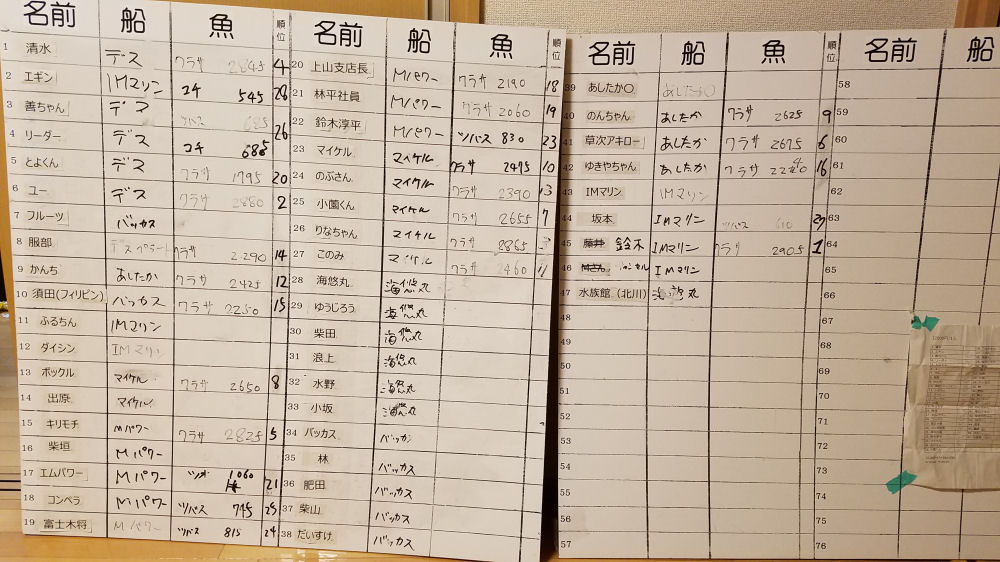 名前 船 魚 順位
1 清水 デス ワラサ 2845 4
2 エギン IMマリン コチ 545 28
3 善ちゃん デス ツバス 685
4 リーダー デス コチ 685 26
5 とよくん デス ワラサ 1795 20
6 ユー デス ワラサ 2880 2
7 フルーツ バッカス
8 服部 ワラサ 2290 14
9 かんち あしたか ワラサ 2425 12
10 須田(フィリピン) バッカス ワラサ 2250 15
11 ふるちん IMマリン
12 ダイシン IMマリン
13 ボックル マイケル ワラサ 2650 8
14 出原 マイケル
15 キリモチ Mパワー ワラサ 2825 5
16 柴垣 Mパワー
17 エムパワー Mパワー 1060 21
18 コンペラ Mパワー ツバス 745 25
19 富士木将 Mパワー ツバス 815 24
名前 船 魚 順位
20 上山支店長 Mパワー ワラサ 2190 18
21 林平社員 Mパワー ワラサ 2060 19
22 鈴木淳平 Mパワー ツバス 830 23
23 マイケル マイケル ワラサ 2475 10
24 のぶさん マイケル ワラサ 2390 13
25 小薗くん マイケル ワラサ 2655 7
26 りなちゃん マイケル ワラサ 2865 3
27 このみ マイケル ワラサ 2460 11
28 海悠丸 海悠丸
29 ゆうじろう 海悠丸
30 柴田 海悠丸
31 浪上 海悠丸
32 水野 海悠丸
33 小坂 海悠丸
34 バッカス バッカス
35 林 バッカス
36 肥田 バッカス
37 柴山 バッカス
38 だいすけ バッカス
名前 船 魚 順位
39 あしたか〇 あしたか〇
40 のんちゃん あしたか ワラサ 2625 9
41 草次アキロー あしたか ワラサ 2675 6
42 ゆきやちゃん あしたか ワラサ 16
43 IMマリン IMマリン
44 坂本 IMマリン ツバス 610 27
45 藤井 鈴木 IMマリン ワラサ 2905 1
46 IMマリン
47 水族館(北川) 海悠丸
48
49
50
51
52
53
54
55
56
57
名前 船
58
59
60
61
62
63
64
65
66
67
68
69
70
71
72
73
74
75
76